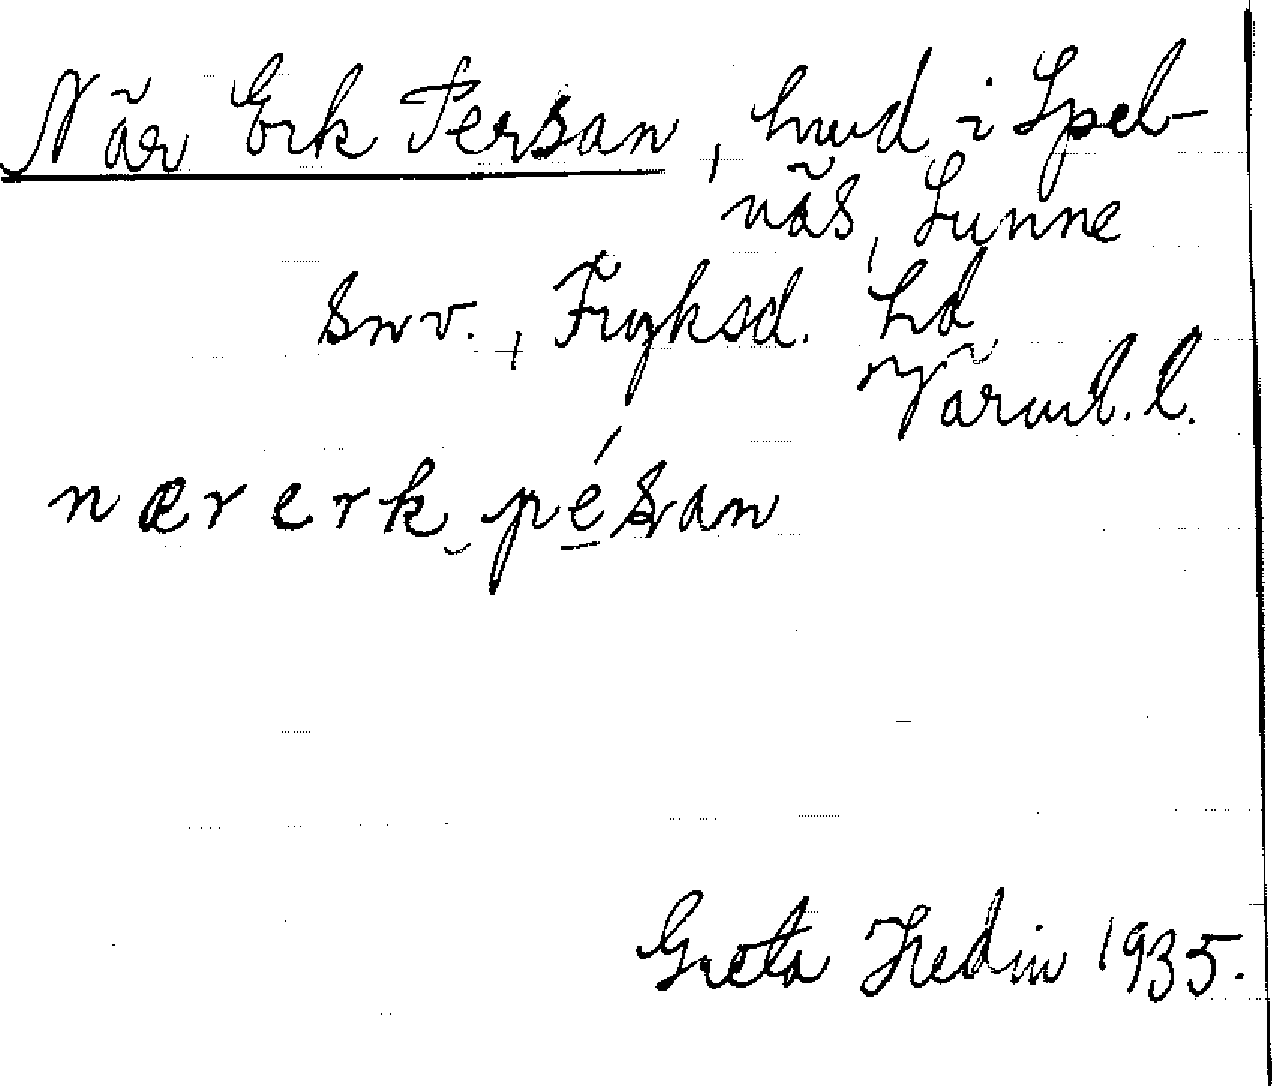 När Erk Persan, hmd i Speb-
näs, Sunne
snv., Fryksd. hd
Värml. l.
nærerk pésan
Greta Hedin 1935.